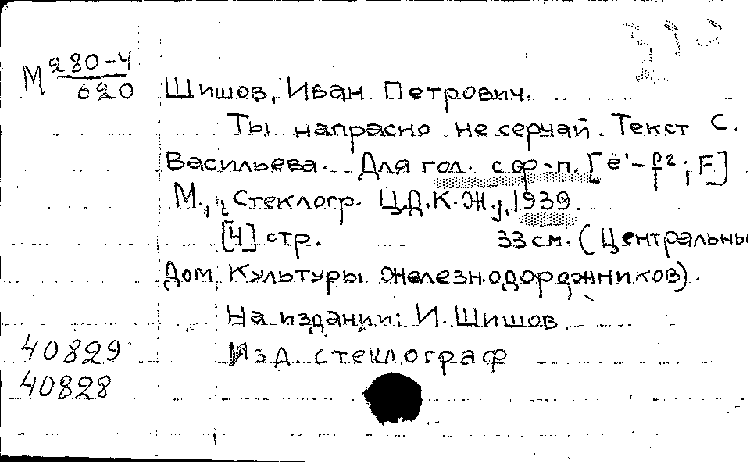 М 280-4
620
Шишов, Иван Петрович.
Ты напрасно не серчай. Текст С.
Васильева. Для гол. с ф-п. [e'-f2; F]
М., Стеклогр. Ц.Д.К.Ж., 1939.
[4] стр. 33 см. (Центральны
Дом Культуры железнодорожников).
На издании: И. Шишов
Изд. стеклограф
40829
40828